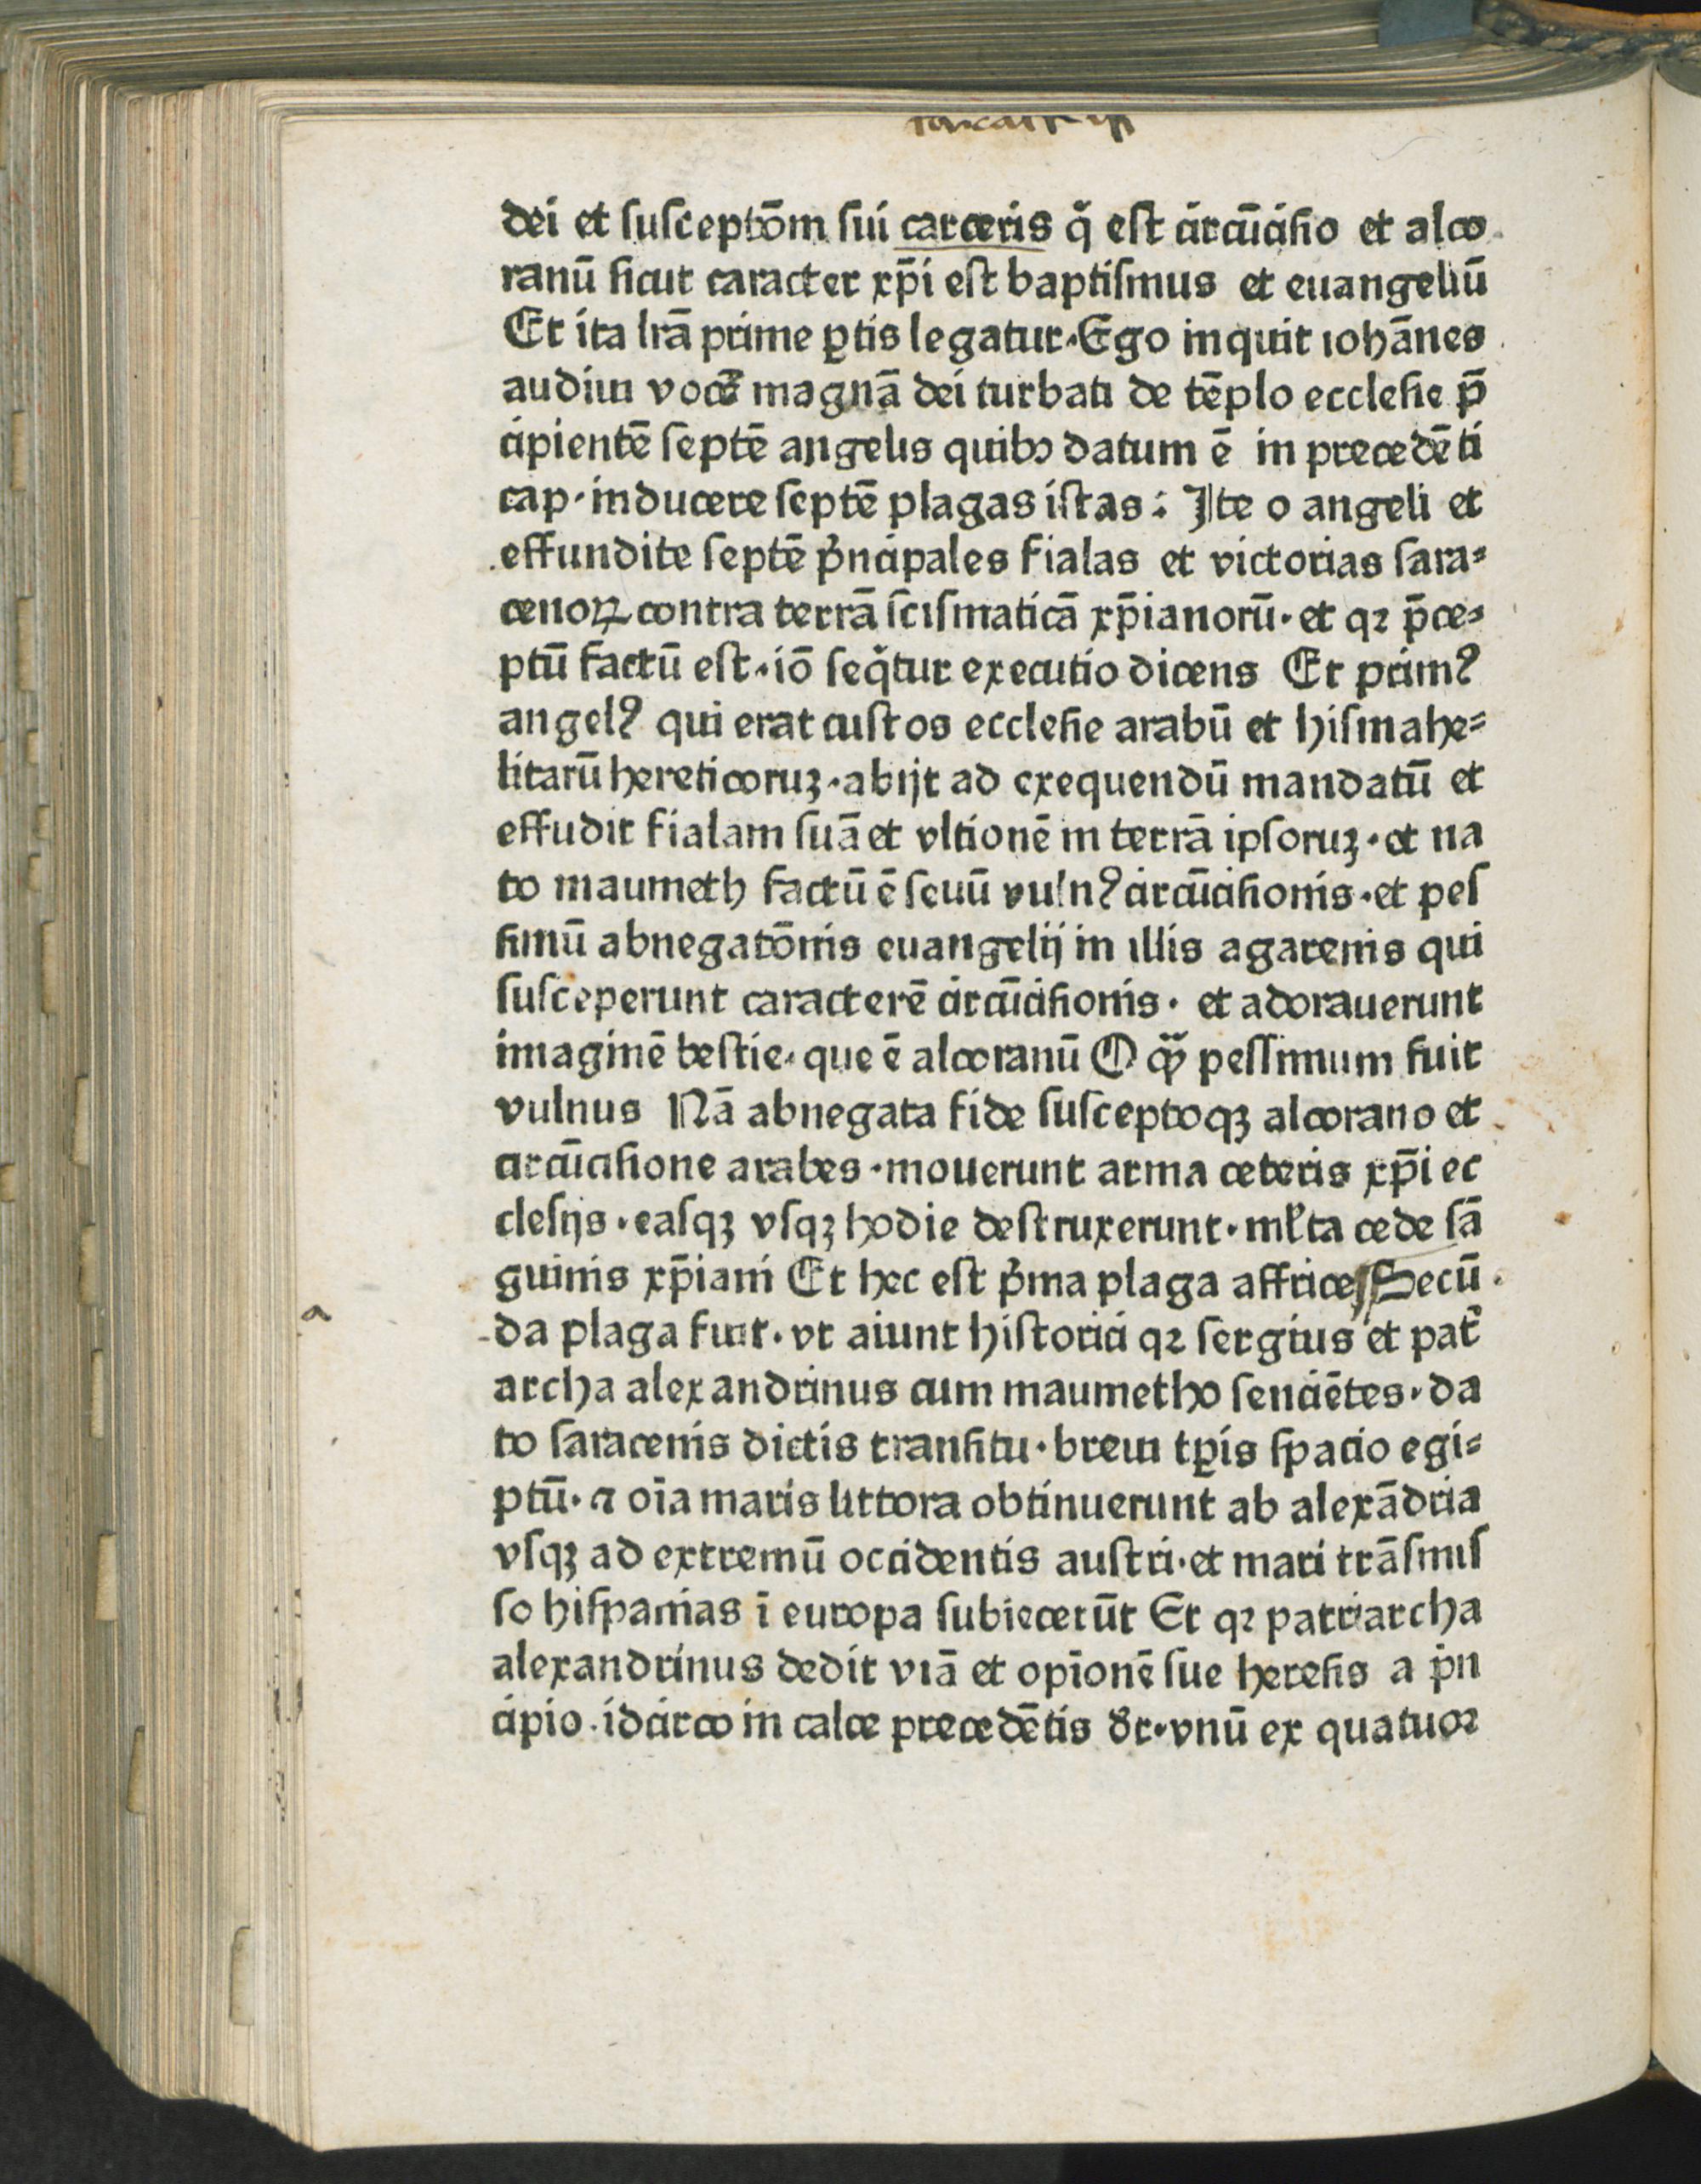 dei et ſuſceptōm ſui carceris q̄ eſt circūciſio et alco
ranū ſicut caracter xp̄i eſt baptiſmus et euangeliū
Et ita lrā prime ꝑtis legatur·Ego inquit iohānes
audiui vocē magnā dei turbati de tēplo eccleſie p̄
cipientē ſeptē angelis quibꝫ datum ē in precedēti
cap·inducere ſeptē plagas iſtas: Ite o angeli et
effundite ſeptē pͥncipales fialas et victorias ſara⸗
cenoꝝ contra terrā ſciſmaticā xp̄ianorū·et qꝛ p̄ce⸗
ptū factū eſt·iō ſeq̄tur executio dicens Et primꝰ
angelꝰ qui erat cuſtos eccleſie arabū et hiſmahe⸗
litarū hereticoruꝫ·abijt ad exequendū mandatū et
effudit fialam ſuā et vltionē in terrā ipſoruꝫ·et na
to maumeth factū ē ſeuū vulnꝰ circūciſionis·et peſ
ſimū abnegatōnis euangelij in illis agarenis qui
ſuſceperunt caracterē circūciſionis· et adorauerunt
imaginē beſtie·que ē alcoranū O qͣꝫ peſſimum fuit
vulnus Nā abnegata fide ſuſceptoqꝫ alcorano et
circūciſione arabes·mouerunt arma ceteris xp̄i ec
cleſijs·eaſqꝫ vſqꝫ hodie deſtruxerunt·ml̓ta cede ſā
guinis xp̄iani Et hec eſt pͥma plaga affrice Secū
da plaga fuit·vt aiunt hiſtorici qꝛ ſergius et patͥ
archa alexandrinus cum maumetho ſenciētes·da
to ſaracenis dictis tranſitu·breui tꝑis ſpacio egi⸗
ptū·⁊ oīa maris littora obtinuerunt ab alexādria
vſqꝫ ad extremū occidentis auſtri·et mari trāſmiſ
ſo hiſpanias ī europa ſubiecerūt Et qꝛ patriarcha
alexandrinus dedit viā et opīonē ſue hereſis a pͥn
cipio·idcirco in calce precedētis dr̄·vnū ex quatuoꝛ